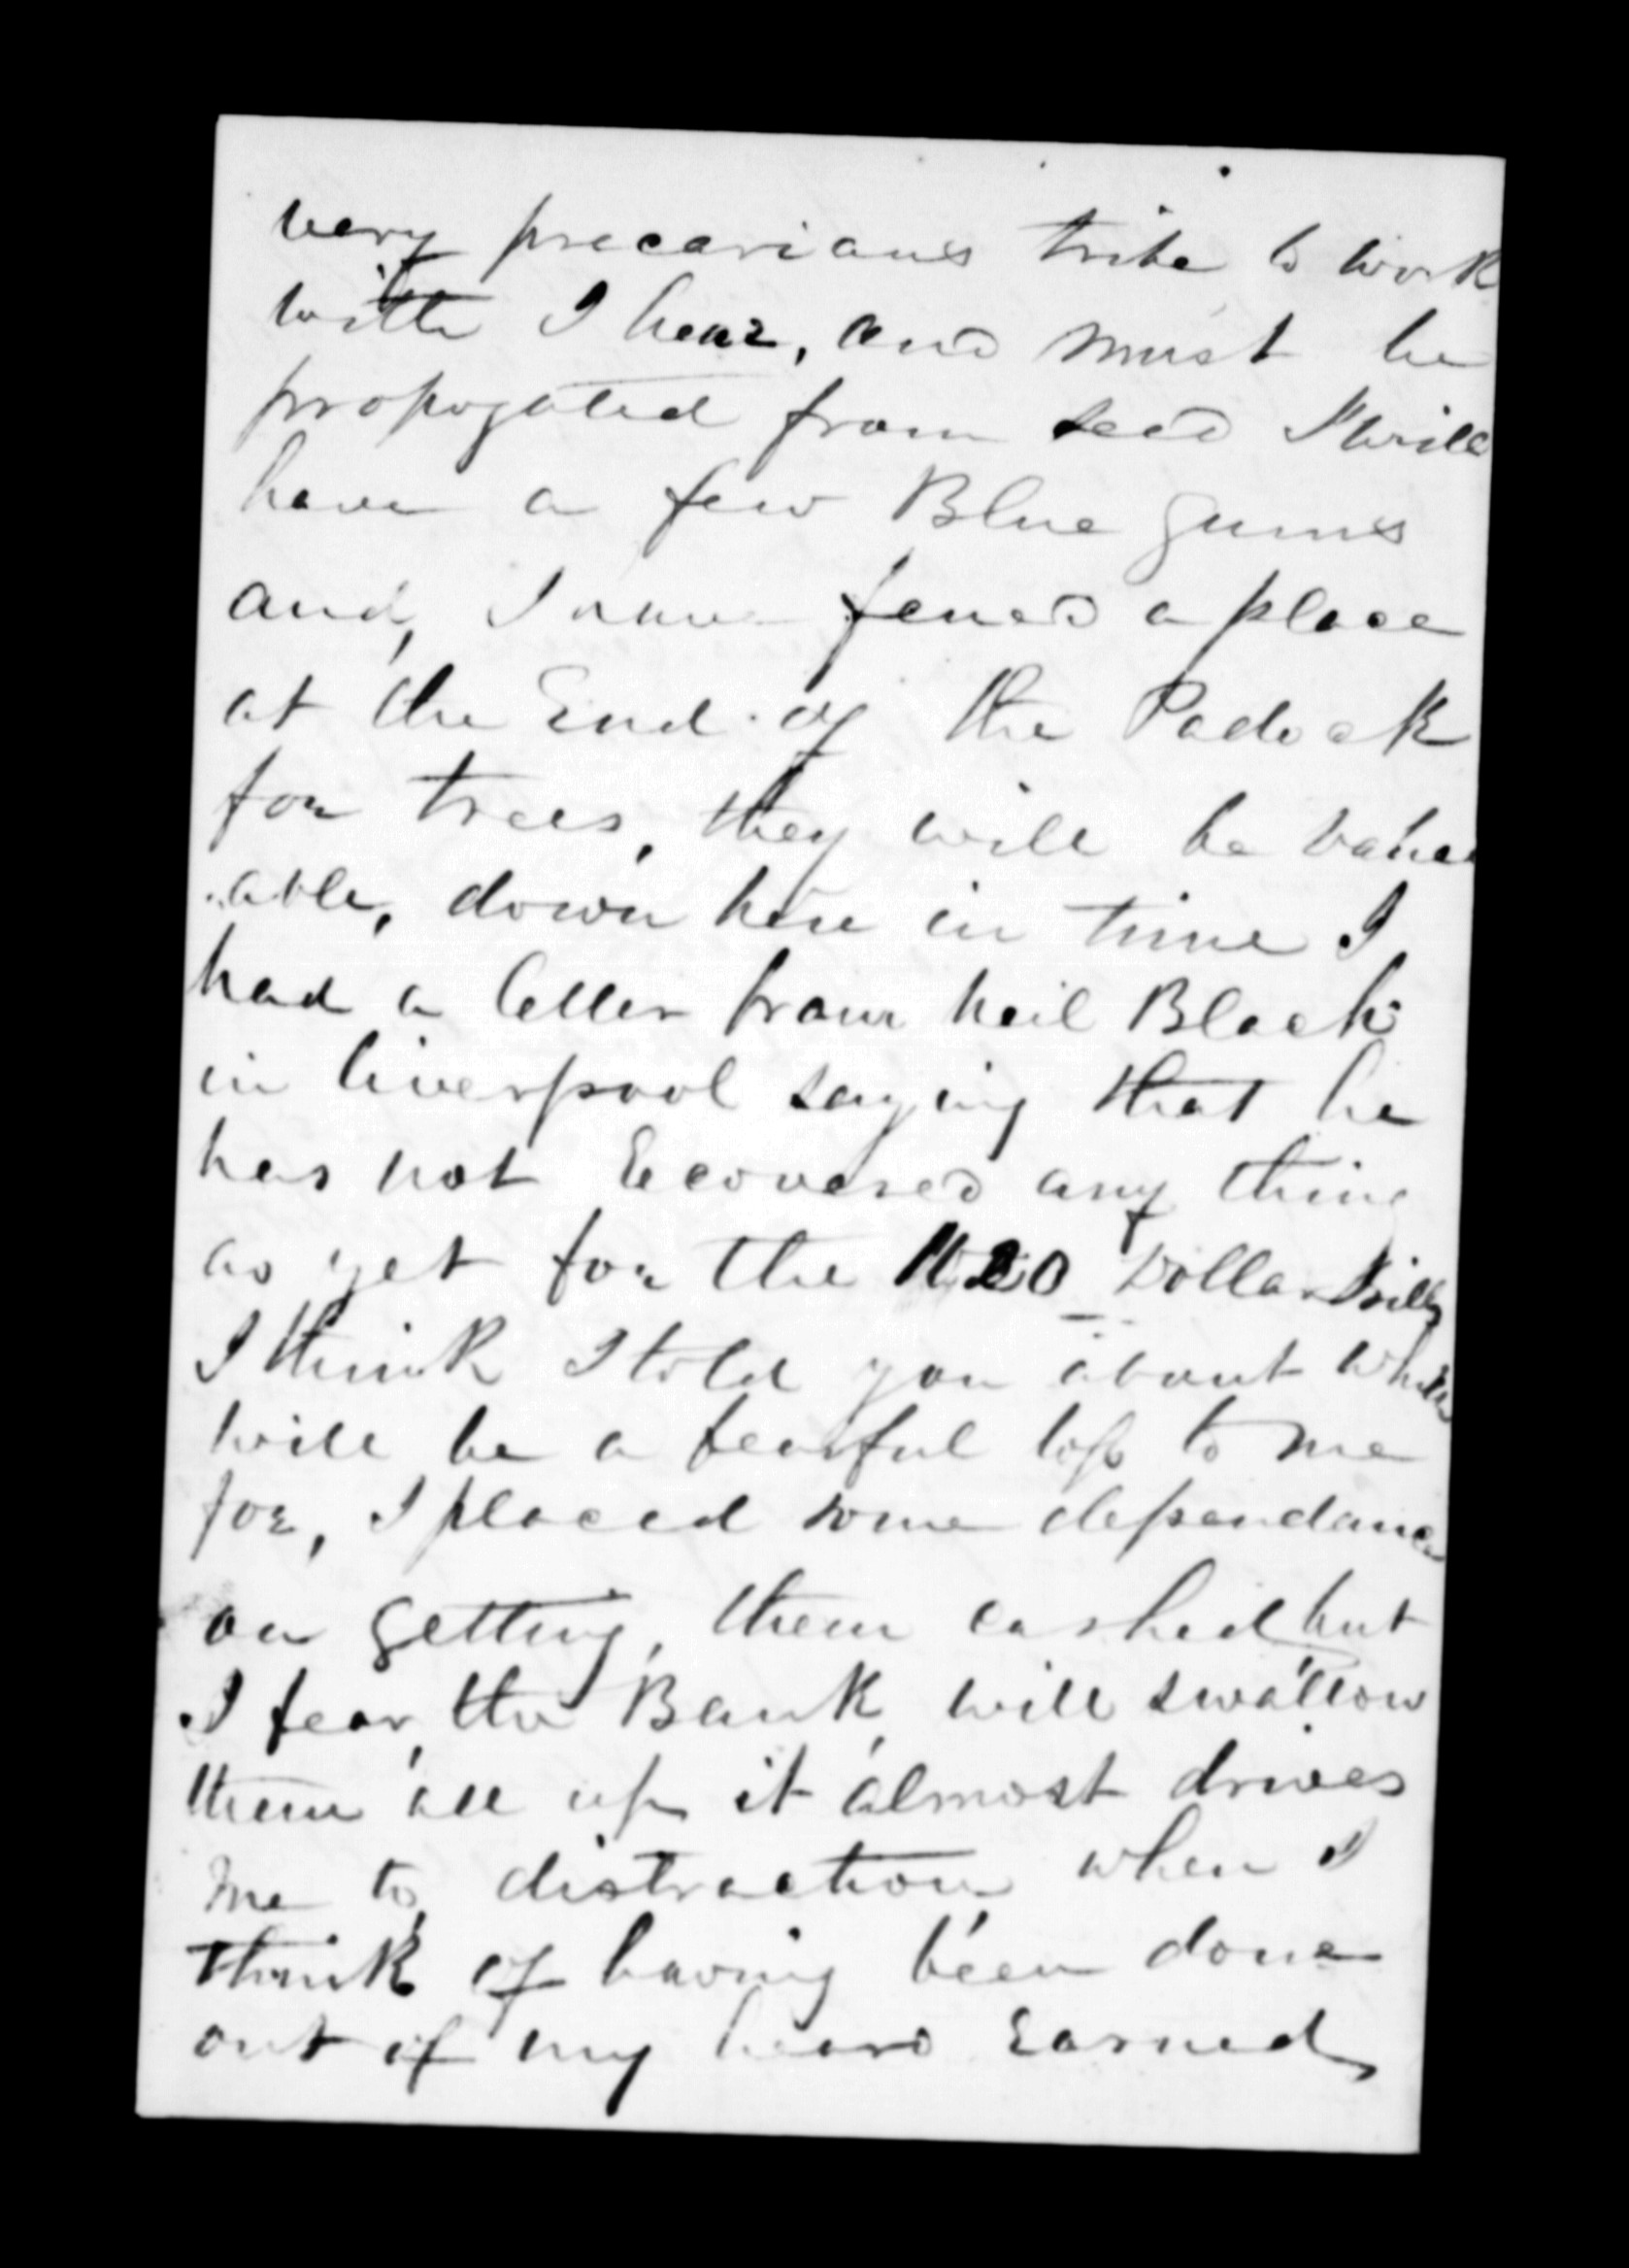 very precarious tribe to work
with I hear, and must be
propogated from seed I will
have a few Blue gums
and, I have fenced a place
at the End of the Padock
for trees, they will be value
able, down here in time I
had a letter from Neil Black
in Liverpool saying that he
has not Recovered any thing
as yet for the 1120 Dollar Bills
I think I told you about which
will be a fearful loss to me
for, I placed some dependance
on getting, them cashed but
I fear, the Bank will swallow
them all up it almost drives
me to, distraction when I
think of having been done
out of my hard Earned